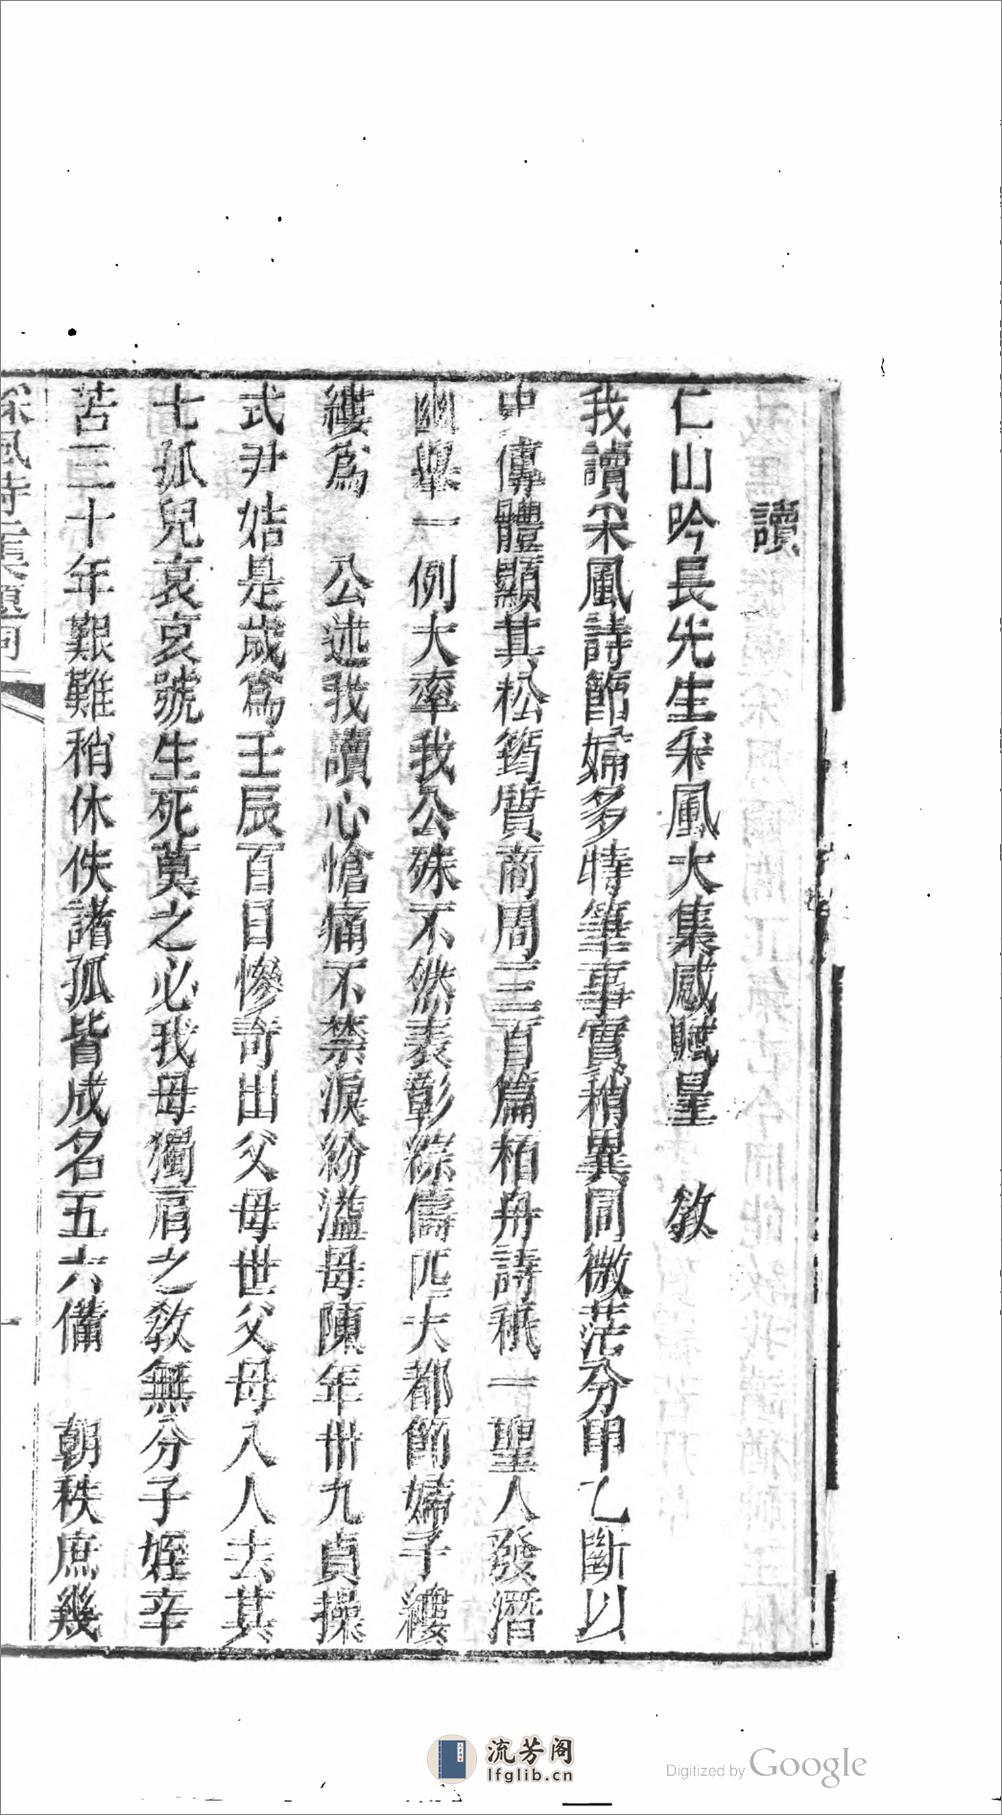 讀
仁山吟長先生采風大集感賦呈　教
我讀采風詩節婦多特筆事實稍異同微茫分甲乙斷以
史傳體顯其松筠質商周三百篇栢舟詩秖一聖人發潛
幽舉一例大率我公殊不然表彰綜儔匹大都節婦子縷
縷爲　公述我讀心愴痛不禁淚紛溢母陳年卅九貞操
式尹姞是歲爲壬辰百日慘奇出父母世父母入人去其
七孤兒哀哀號生死莫之必我母獨肩之敎無分子姪辛
苦三十年艱難稍休佚諸孤皆成名五六備　朝秩庶幾
採風詩集題詞
一
流芳阁
lfglib.cn
Digitized by Google